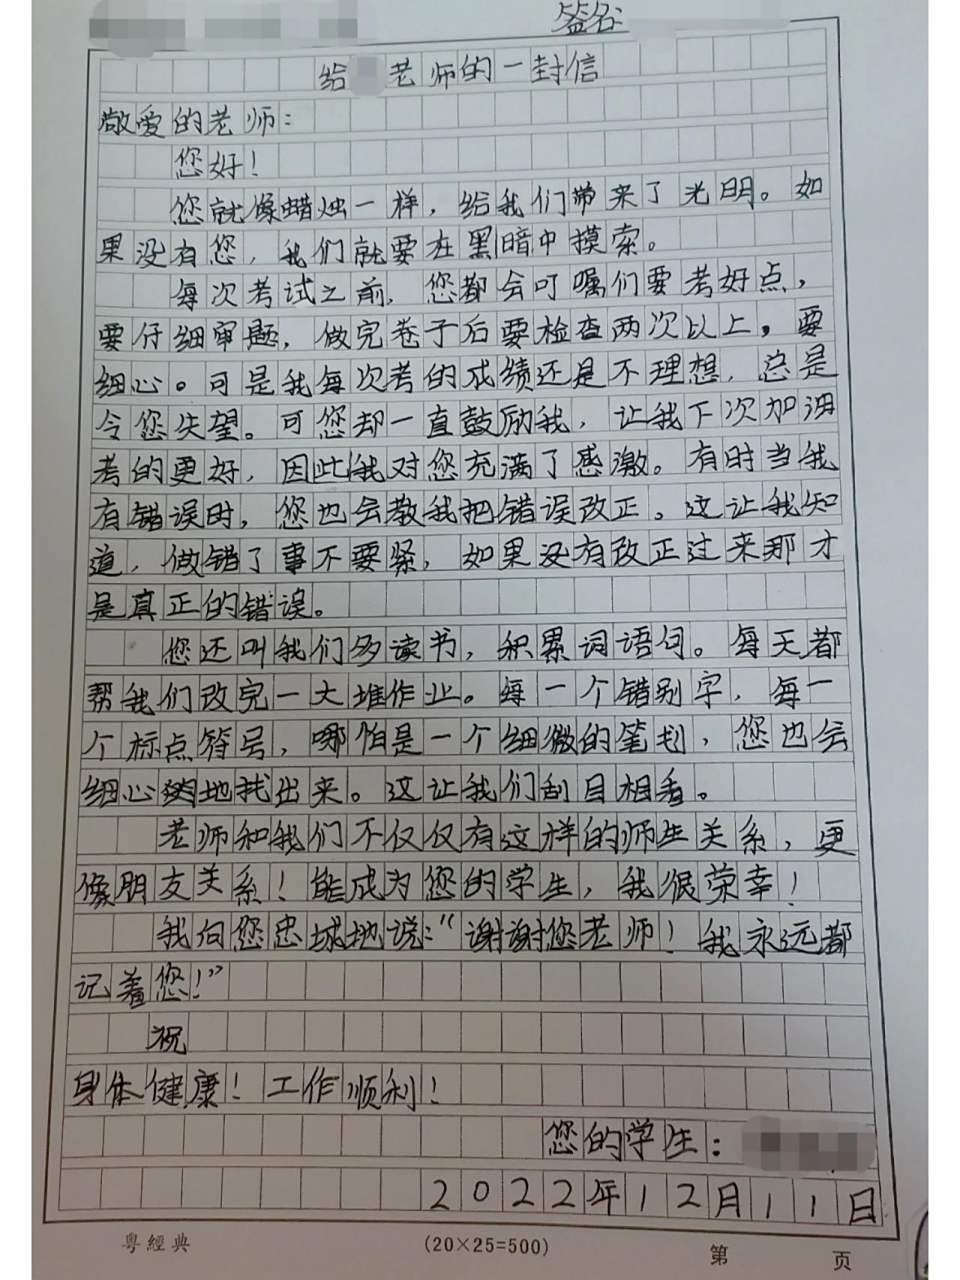 签名:
给 老师的一封信
敬爱的老师:
您好!
您就像蜡烛一样,给我们带来了光明。如
果没有您,我们就要在黑暗中摸索。
每次考试之前,您都会叮嘱们要考好点,
要仔细审题,做完卷子后要检查两次以上,要
细心。可是我每次考的成绩还是不理想,总是
令您失望。可您却一直鼓励我,让我下次加油
考的更好,因此我对您充满了感激。有时当我
有错误时,您也会教我把错误改正。这让我知
道,做错了事不要紧,如果没有改正过来那才
是真正的错误。
您还叫我们多读书,积累词语句。每天都
帮我们改完一大堆作业。每一个错别字,每一
个标点符号,哪怕是一个细微的笔划,您也会
细心地找出来。这让我们刮目相看。
老师和我们不仅仅有这样的师生关系,更
像朋友关系!能成为您的学生,我很荣幸!
我向您忠城地说:“谢谢您老师!我永远都
记着您!”
祝
身体健康!工作顺利!
您的学生:
2022年12月11日
粤經典 (20×25=500) 第 页